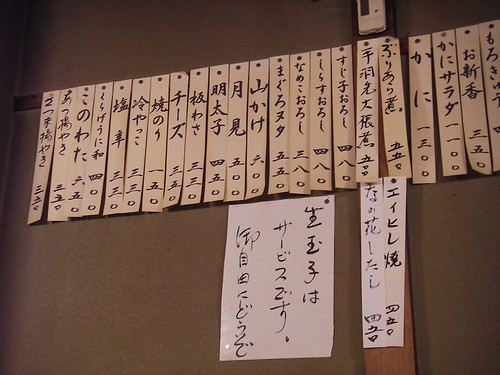 もろきゅう
お新香 三五〇
かにサラダ 一一〇〇
かに 一三〇〇
ぶりあら煮 五五〇
すじ子おろし 四八〇
しらすおろし 四八〇
なめこおろし 三八〇
まぐろヌタ 五五〇
山かけ 六〇〇
月見 五五〇
明太子 四五〇
板わさ 三三〇
チーズ 三三〇
焼のり 一五〇
冷やっこ 三三〇
塩辛 三三〇
くらげうに和 四〇〇
このわた 六五〇
あつ揚やき 三五〇
さつま揚やき 三五〇
エイヒレ焼 四五〇
なの花しだし 四五〇
生玉子は
サービスです。
御自由にどうぞ